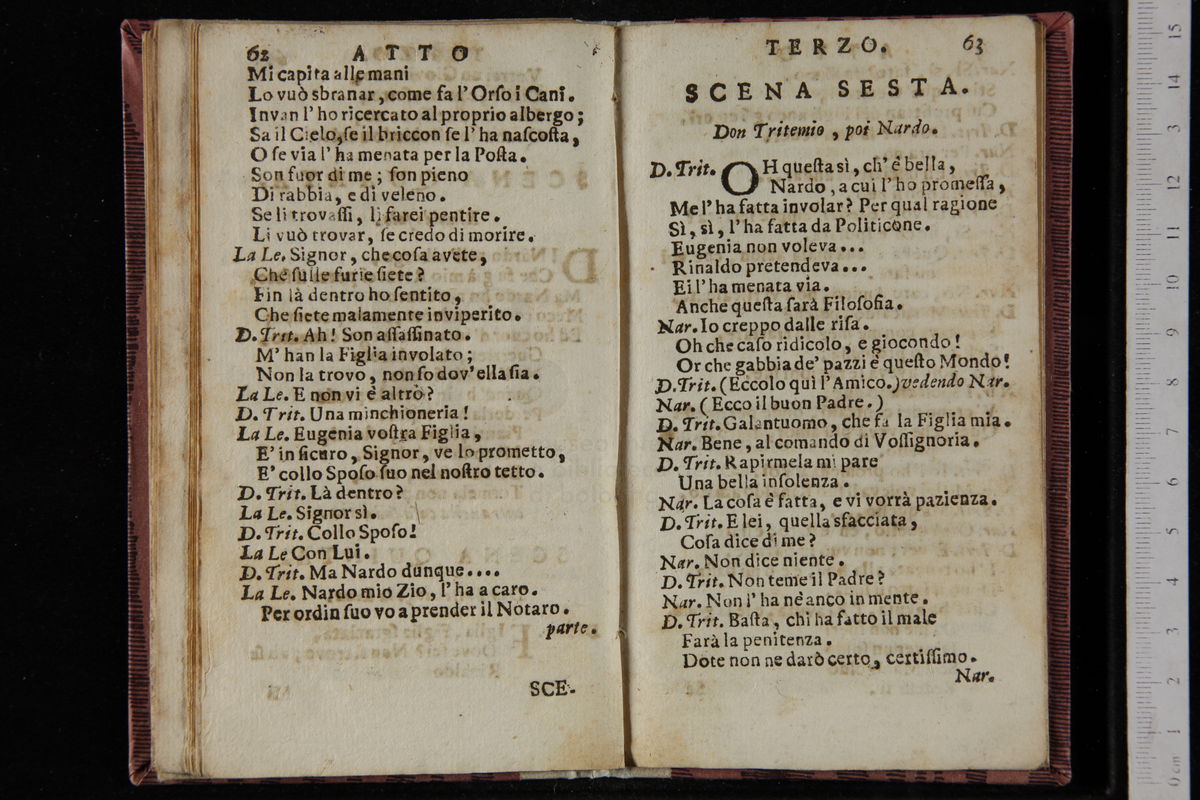 62 ATTO
Mi capita alle mani
Lo vuò sbranar, come fa l'Orſo i Cani.
Invan l'ho ricercato al proprio albergo;
Sa il Cielo, ſe il briccon ſe l'ha naſcoſta,
O ſe via l'ha menata per la Poſta.
Son fuor di me; ſon pieno
Di rabbia, e di veleno.
Se li trovaſſi, li farei pentire.
Li vuò trovar, ſe credo di morire.
La Le. Signor, che coſa avete,
Che ſulle furie ſiete?
Fin là dentro ho ſentito,
Che ſiete malamente inviperito.
D. Trit. Ah! Son aſſaſſinato.
M'han la Figlia involato;
Non la trovo, non ſo dov'ella ſia.
La Le. E non vi è altro?
D. Trit. Una minchioneria!
La Le. Eugenia voſtra Figlia,
E' in ſicuro, Signor, ve lo prometto,
E' collo Spoſo ſuo nel noſtro tetto.
D. Trit. Là dentro?
La Le. Signor sì.
D. Trit. Collo Spoſo!
La Le Con Lui.
D. Trit. Ma Nardo dunque....
La Le. Nardo mio Zio, l'ha a caro.
Per ordin ſuo vo a prender il Notaro.
parte.
SCE-
TERZO. 63
SCENA SESTA.
Don Tritemio, poi Nardo.
D. Trit. OH queſta sì, ch'è bella,
Nardo, a cui l'ho promeſſa,
Me l'ha fatta involar? Per qual ragione
Sì, sì, l'ha fatta da Politicone.
Eugenia non voleva...
Rinaldo pretendeva...
Ei l'ha menata via.
Anche queſta ſarà Filoſofia.
Nar. Io creppo dalle riſa.
Oh che caſo ridicolo, e giocondo!
Or che gabbia de' pazzi è queſto Mondo!
D. Trit. (Eccolo quì l'Amico.) vedendo Nar.
Nar. (Ecco il buon Padre.)
D. Trit. Galantuomo, che fa la Figlia mia.
Nar. Bene, al comando di Voſſignoria.
D. Trit. Rapirmela mi pare
Una bella inſolenza.
Nar. La coſa è fatta, e vi vorrà pazienza.
D. Trit. E lei, quella sfacciata,
Coſa dice di me?
Nar. Non dice niente.
D. Trit. Non teme il Padre?
Nar. Non l'ha nè anco in mente.
D. Trit. Baſta, chi ha fatto il male
Farà la penitenza.
Dote non ne darò certo, certiſſimo.
Nar.